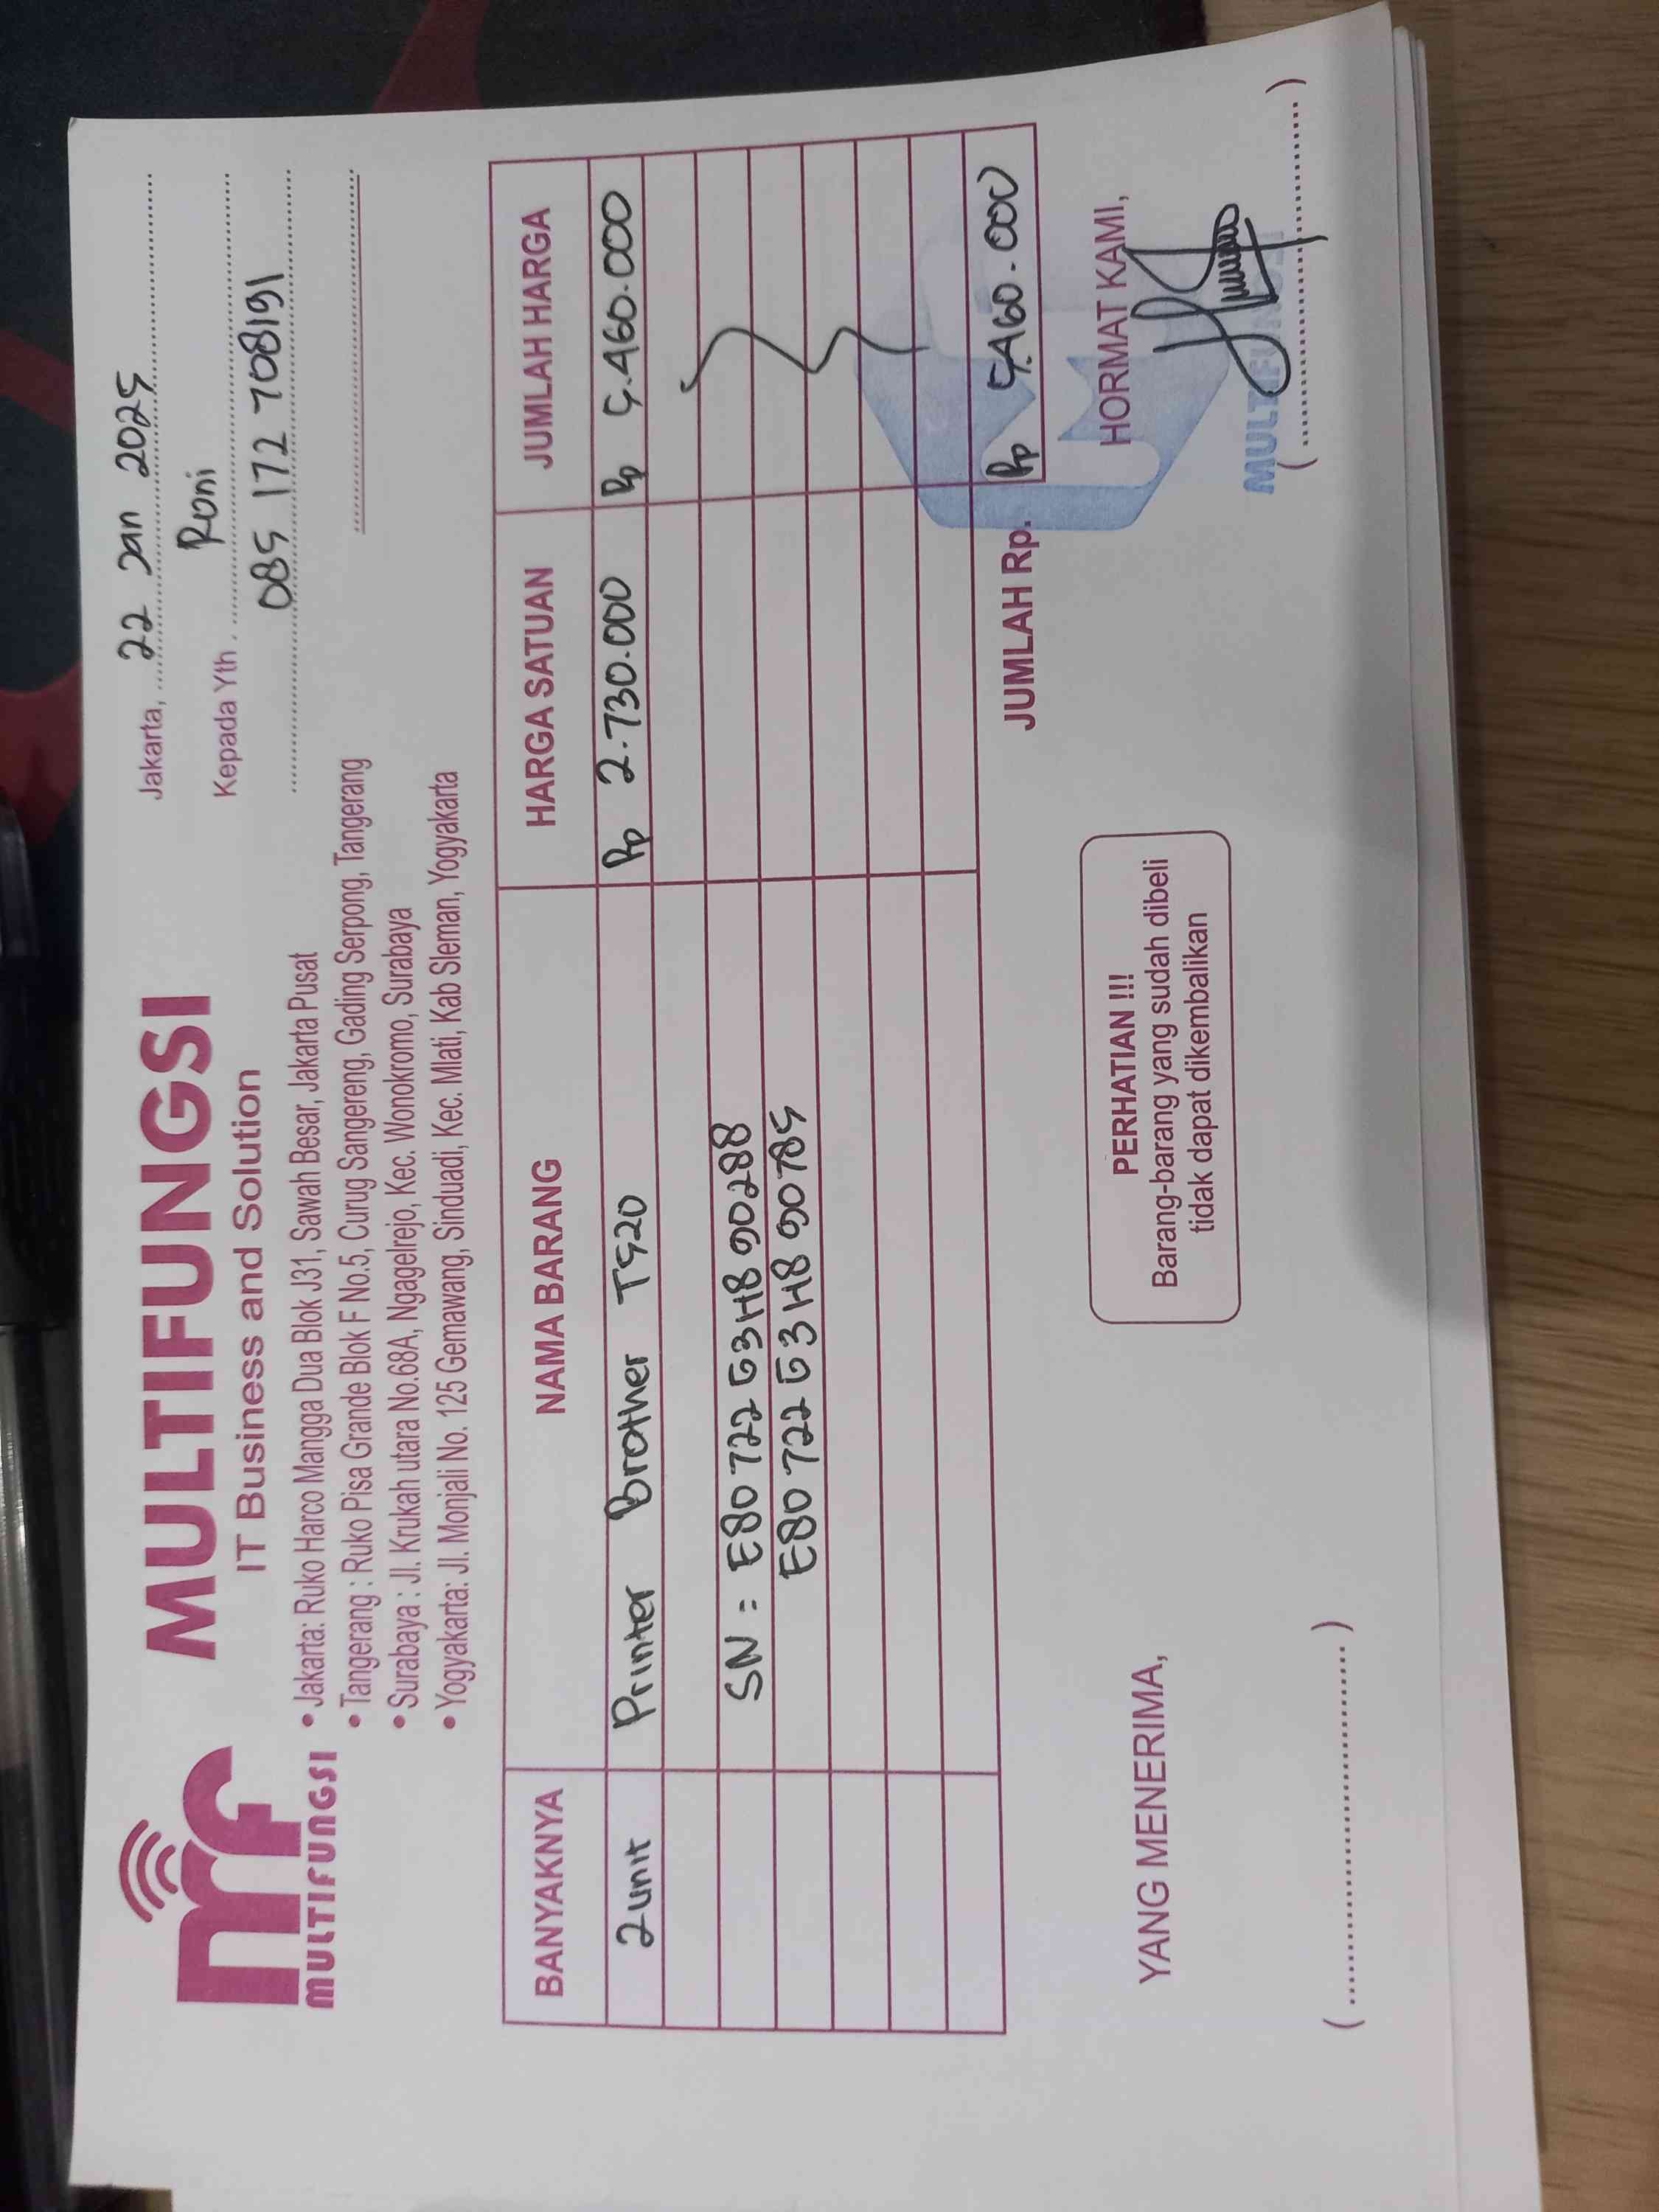 mf
MULTIFUNGSI
MULTIFUNGSI
IT Business and Solution
• Jakarta: Ruko Harco Mangga Dua Blok J31, Sawah Besar, Jakarta Pusat
• Tangerang : Ruko Pisa Grande Blok F No.5, Curug Sangereng, Gading Serpong, Tangerang
• Surabaya : Jl. Krukah utara No.68A, Ngagelrejo, Kec. Wonokromo, Surabaya
• Yogyakarta: Jl. Monjali No. 125 Gemawang, Sinduadi, Kec. Mlati, Kab Sleman, Yogyakarta
Jakarta, 22 Jan 2025
Kepada Yth. Roni
085 172 708191
BANYAKNYA NAMA BARANG HARGA SATUAN JUMLAH HARGA
2 unit Printer Brother T520 Rp 2.730.000 Rp 5.460.000
SN = E80722G3H890288
E80722G3H890785
JUMLAH Rp. Rp 5.460.000
YANG MENERIMA,
PERHATIAN !!!
Barang-barang yang sudah dibeli
tidak dapat dikembalikan
HORMAT KAMI,
MULTIFUNGSI
(....................................)
(....................................)